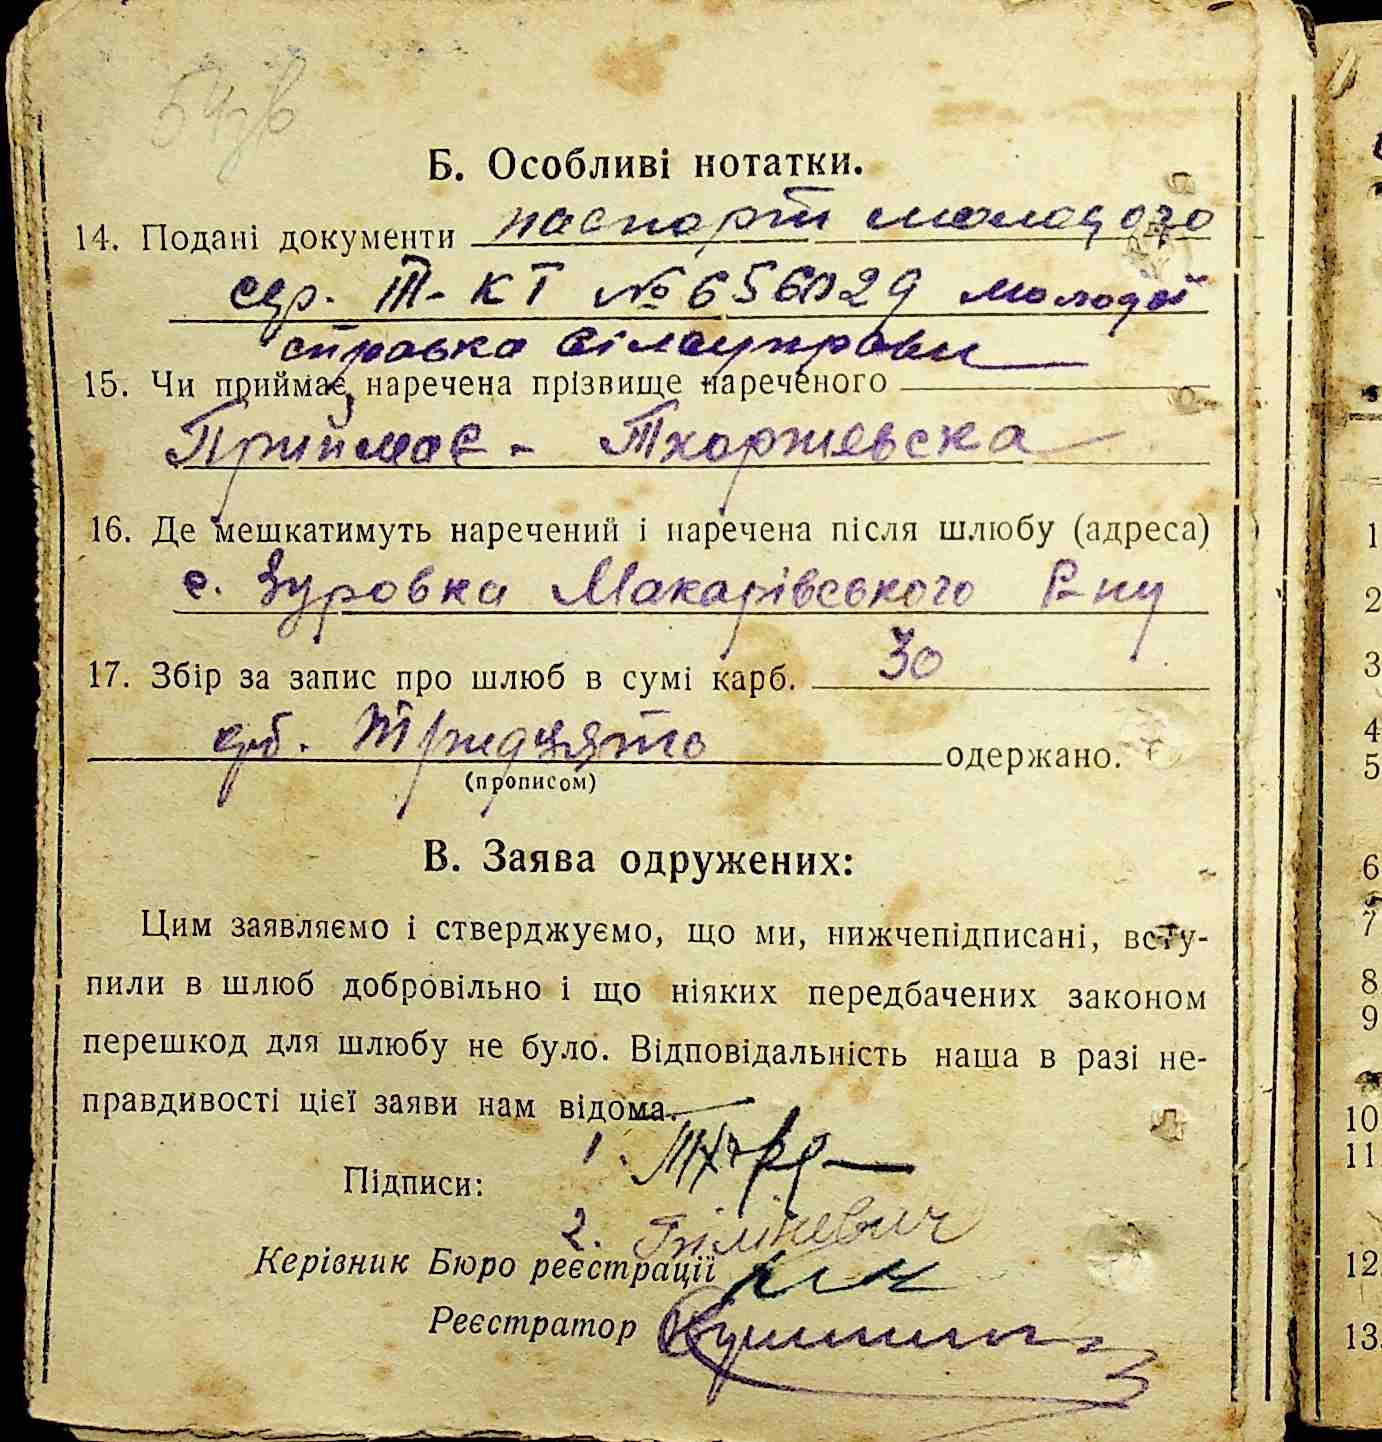 Б. Особливі нотатки.
14. Подані документи паспорт молодого
сер. III-КТ № 656029 молодої
справка сільуправи
15. Чи приймає наречена прізвище нареченого
Приймає - Тхоржевська
16. Де мешкатимуть наречений і наречена після шлюбу (адреса)
с. Зуровка Макарівського Р-ну
17. Збір за запис про шлюб в сумі карб. 30
крб. Тридцять одержано.
(прописом)
В. Заява одружених:
Цим заявляємо і стверджуємо, що ми, нижчепідписані, всту-
пили в шлюб добровільно і що ніяких передбачених законом
перешкод для шлюбу не було. Відповідальність наша в разі не-
правдивості цієї заяви нам відома.
1.
Підписи:
2.
Керівник Бюро реєстрації
Реєстратор
1
2
3
4
5
6
7
8
9
10
11
12
13